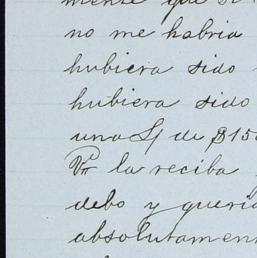 mente que si
no me habria
hubiera sido
hubiera sido
una L/ de $150
Vd la reciba
debo y queria
absolutamen